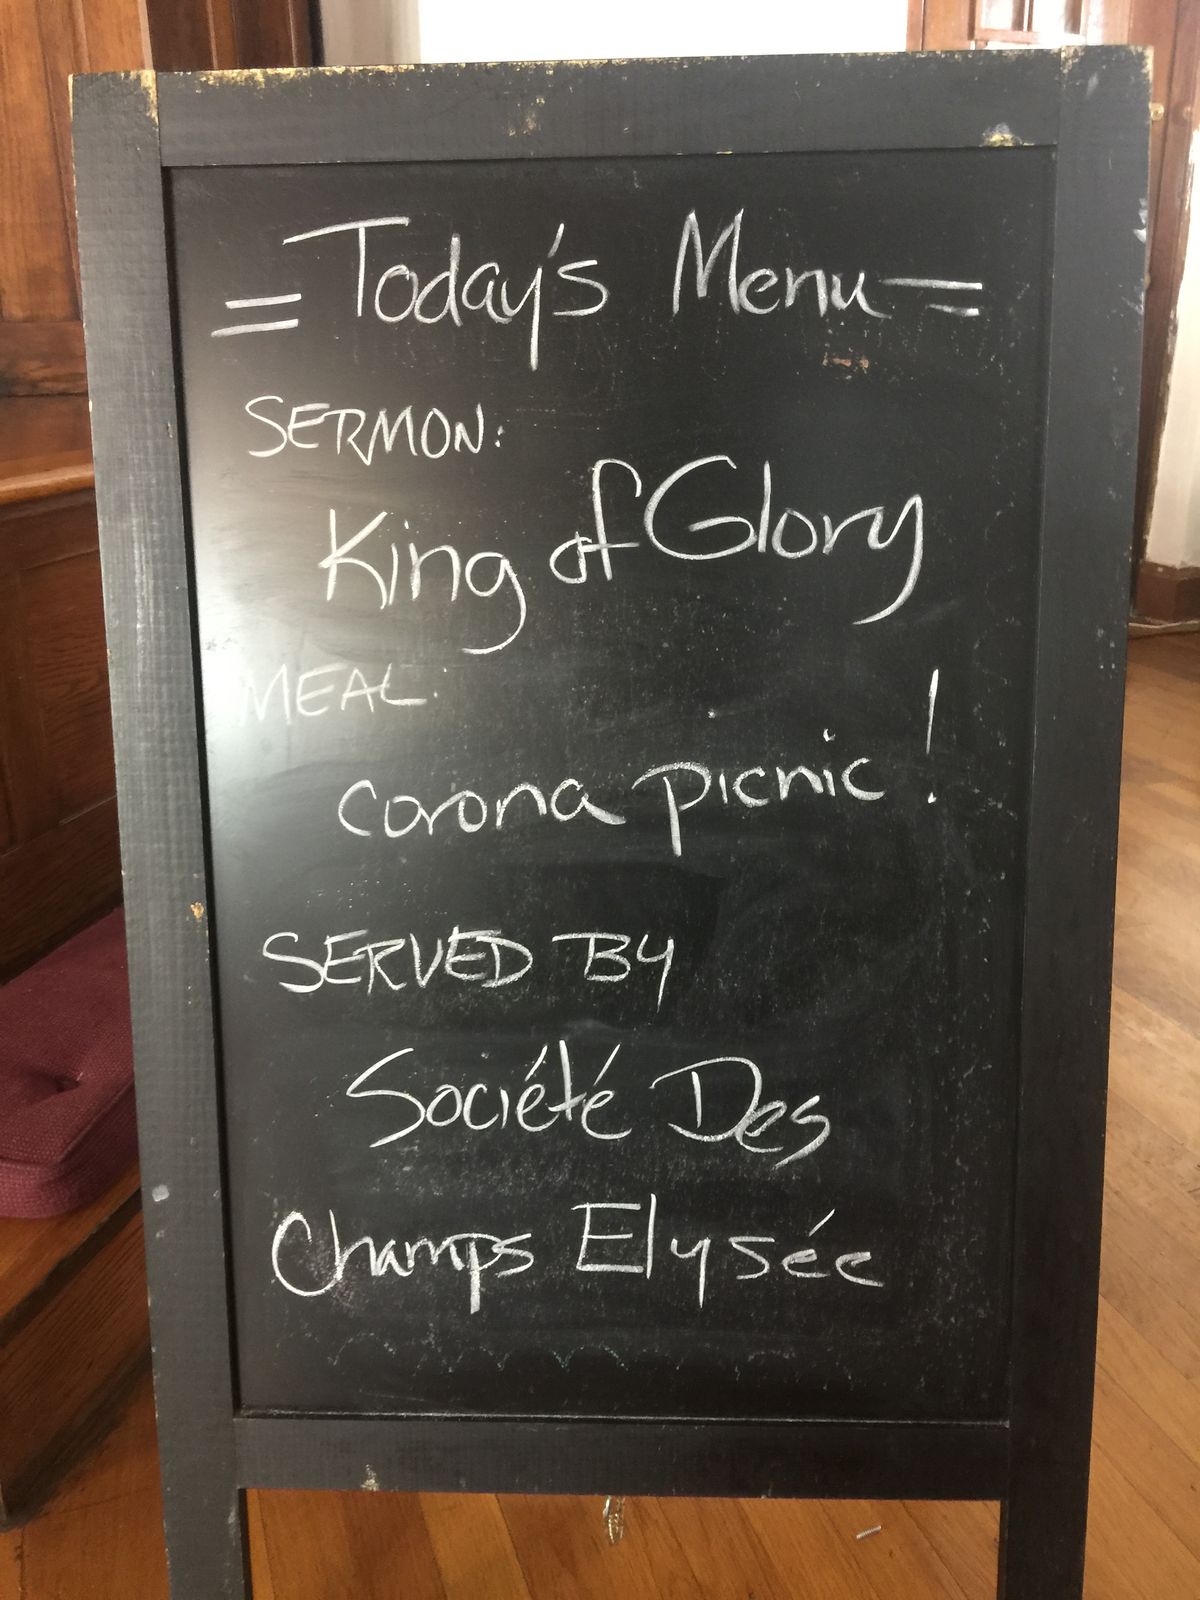 = Today's Menu =
SERMON:
King of Glory
MEAL:
corona picnic!
SERVED BY
Société Des
Champs Elysée